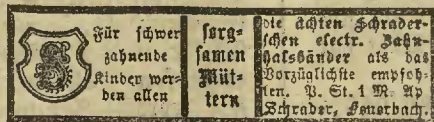 Für schwer
zahnende
Kinder wer-
den allen
sorg-
samen
Müt-
tern
die ächten Schrader-
schen electr. Zahn-
halsbänder als das
Vorzüglichste empfoh-
len. P. St. 1 M. Ap
Schrader, Feuerbach.